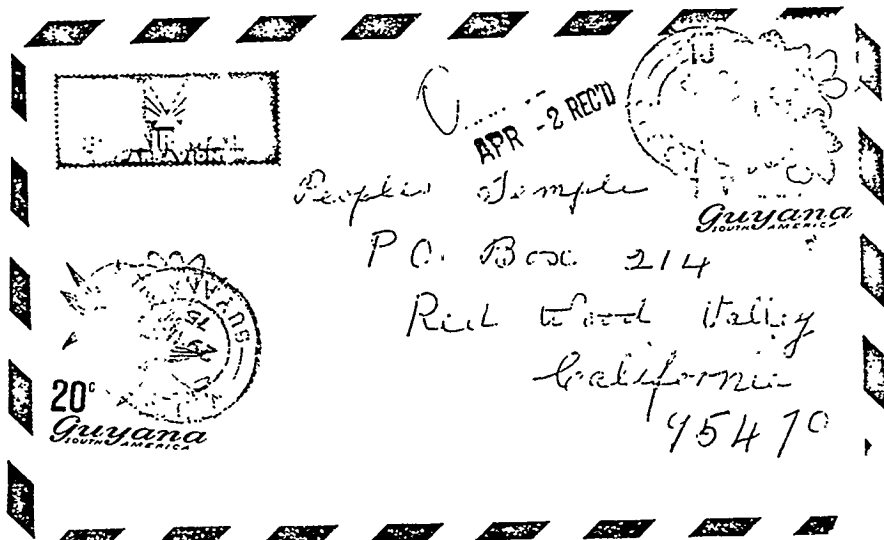 APR - 2 REC'D
Guyana
SOUTH AMERICA
Peoples Temple
P.O. Box 214
Red Wood Valley
California
95470
GUYANA
20c
Guyana
SOUTH AMERICA